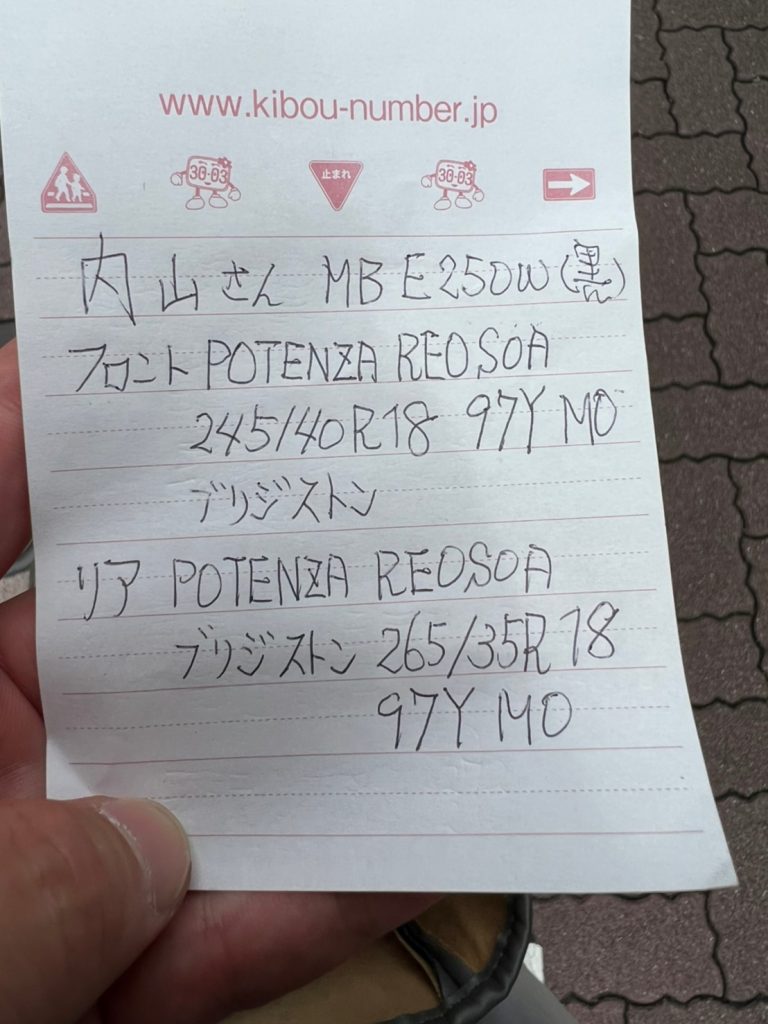 www.kibou-number.jp
30-03 止まれ 30-03
内山さん MB E250W(黒)
フロント POTENZA REOSOA
245/40R18 97Y MO
ブリジストン
リア POTENZA REOSOA
ブリジストン 265/35R18
97Y MO